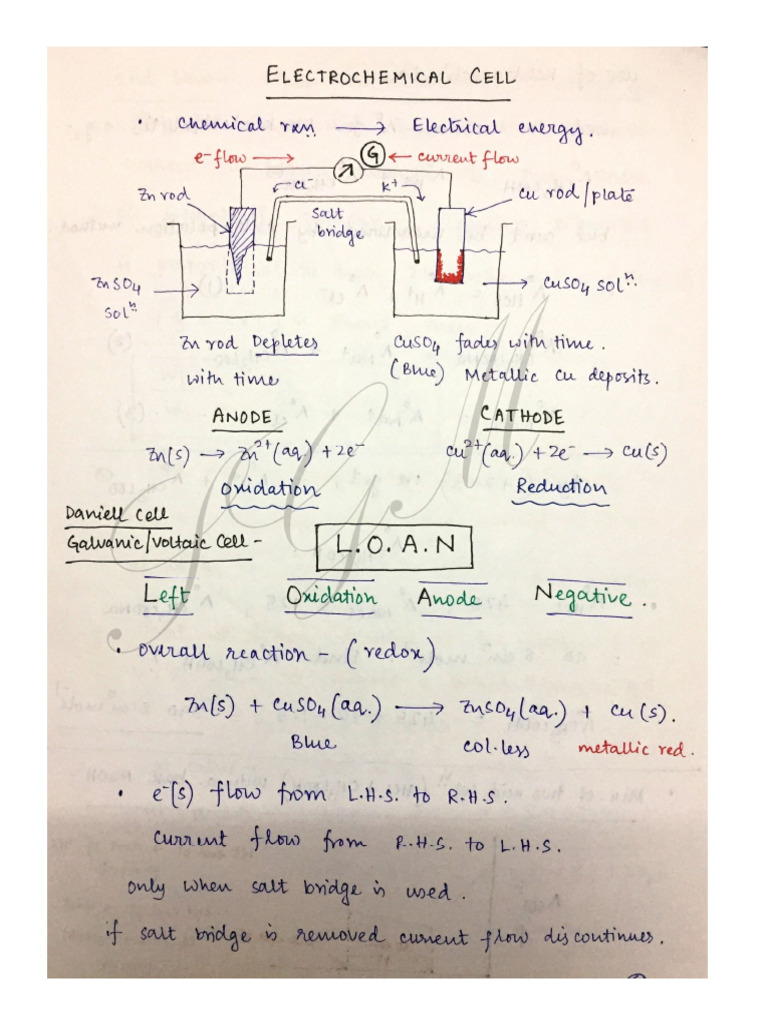 ELECTROCHEMICAL CELL
• Chemical rxn. → Electrical energy.
e⁻ flow → G ← current flow
Zn rod
← Cl⁻ K⁺
Cu rod/plate
Salt
bridge
ZnSO₄
solⁿ.
→ CuSO₄ solⁿ.
Zn rod Depletes
with time
CuSO₄ fades with time.
(Blue) Metallic Cu deposits.
ANODE
CATHODE
Zn(s) → Zn²⁺(aq.) + 2e⁻
Cu²⁺(aq.) + 2e⁻ → Cu(s)
Oxidation
Reduction
Daniell Cell
Galvanic/Voltaic Cell -
L.O.A.N
Left Oxidation Anode Negative.
• Overall reaction - (redox)
Zn(s) + CuSO₄(aq.) → ZnSO₄(aq.) + Cu(s).
Blue col.less metallic red.
• e⁻(s) flow from L.H.S. to R.H.S.
Current flow from R.H.S. to L.H.S.
only when salt bridge is used.
if salt bridge is removed current flow discontinues.